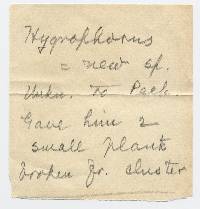 Hygrophorus
= new sp.
Unkn. to Peck.
Gave him 2
small plants
broken fr. cluster